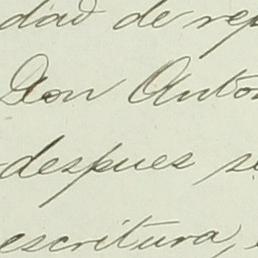 dad de rep
Don Anton
despues se
escritura,